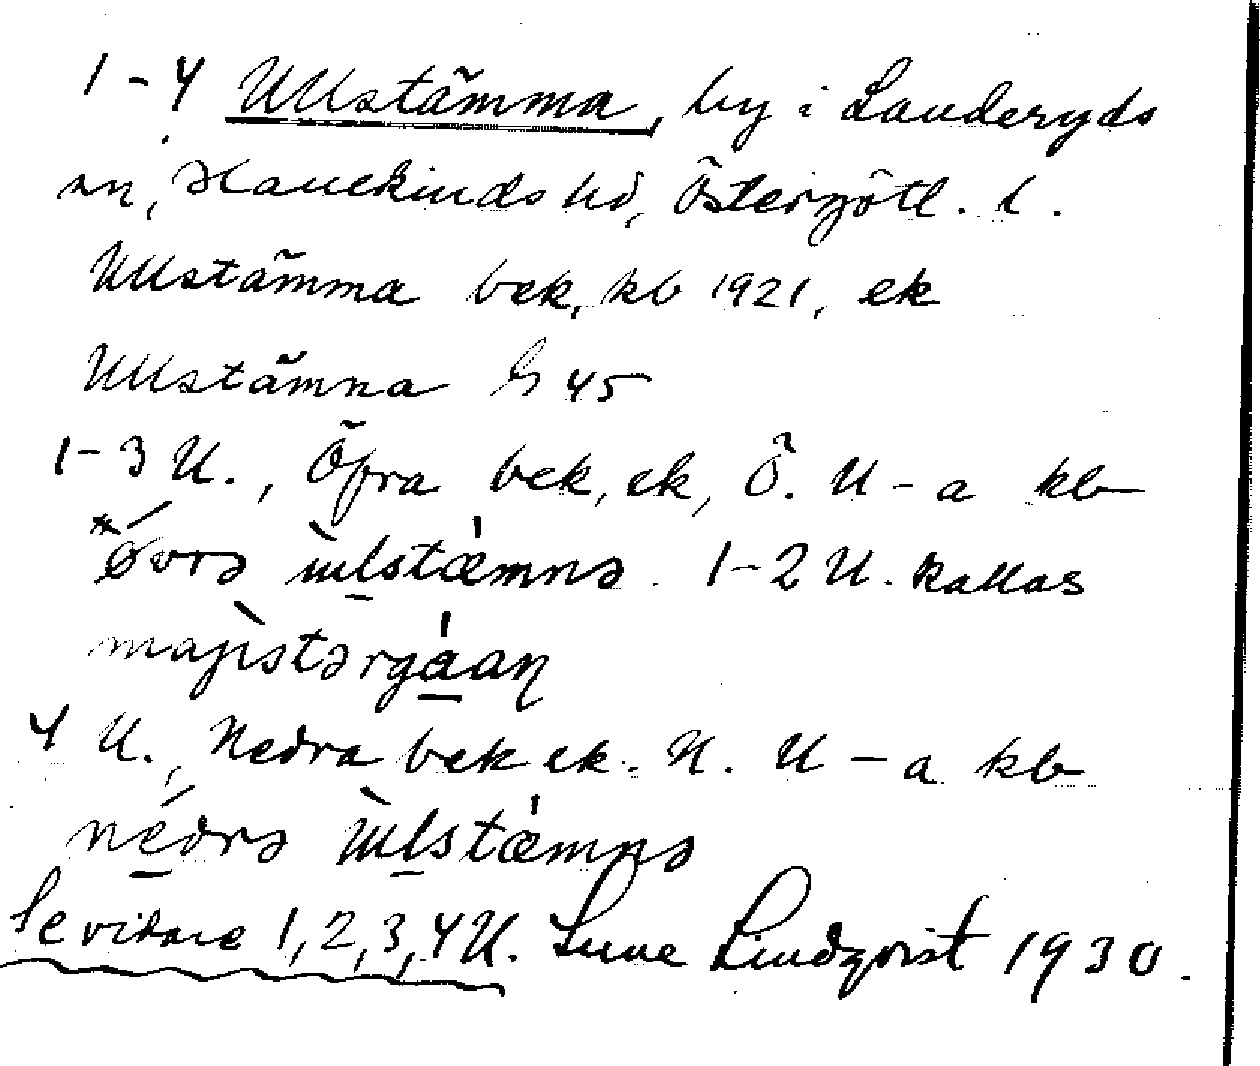 1-4 Ullstämma, by i Landeryds
sn, Hanekinds hd, Östergötl. l.
Ullstämma bek, kb 1921, ek
Ullstämna G 45
1-3 U., Öfra bek, ek, Ö. U-a kb
*óvrə ùlstæmnə. 1-2 U. kallas
majìstərgáaɳ
4 U., Nedra bek ek. N. U-a kb
nédrə ùlstæmnə
Se vidare 1,2,3,4 U. Sune Lindqvist 1930.